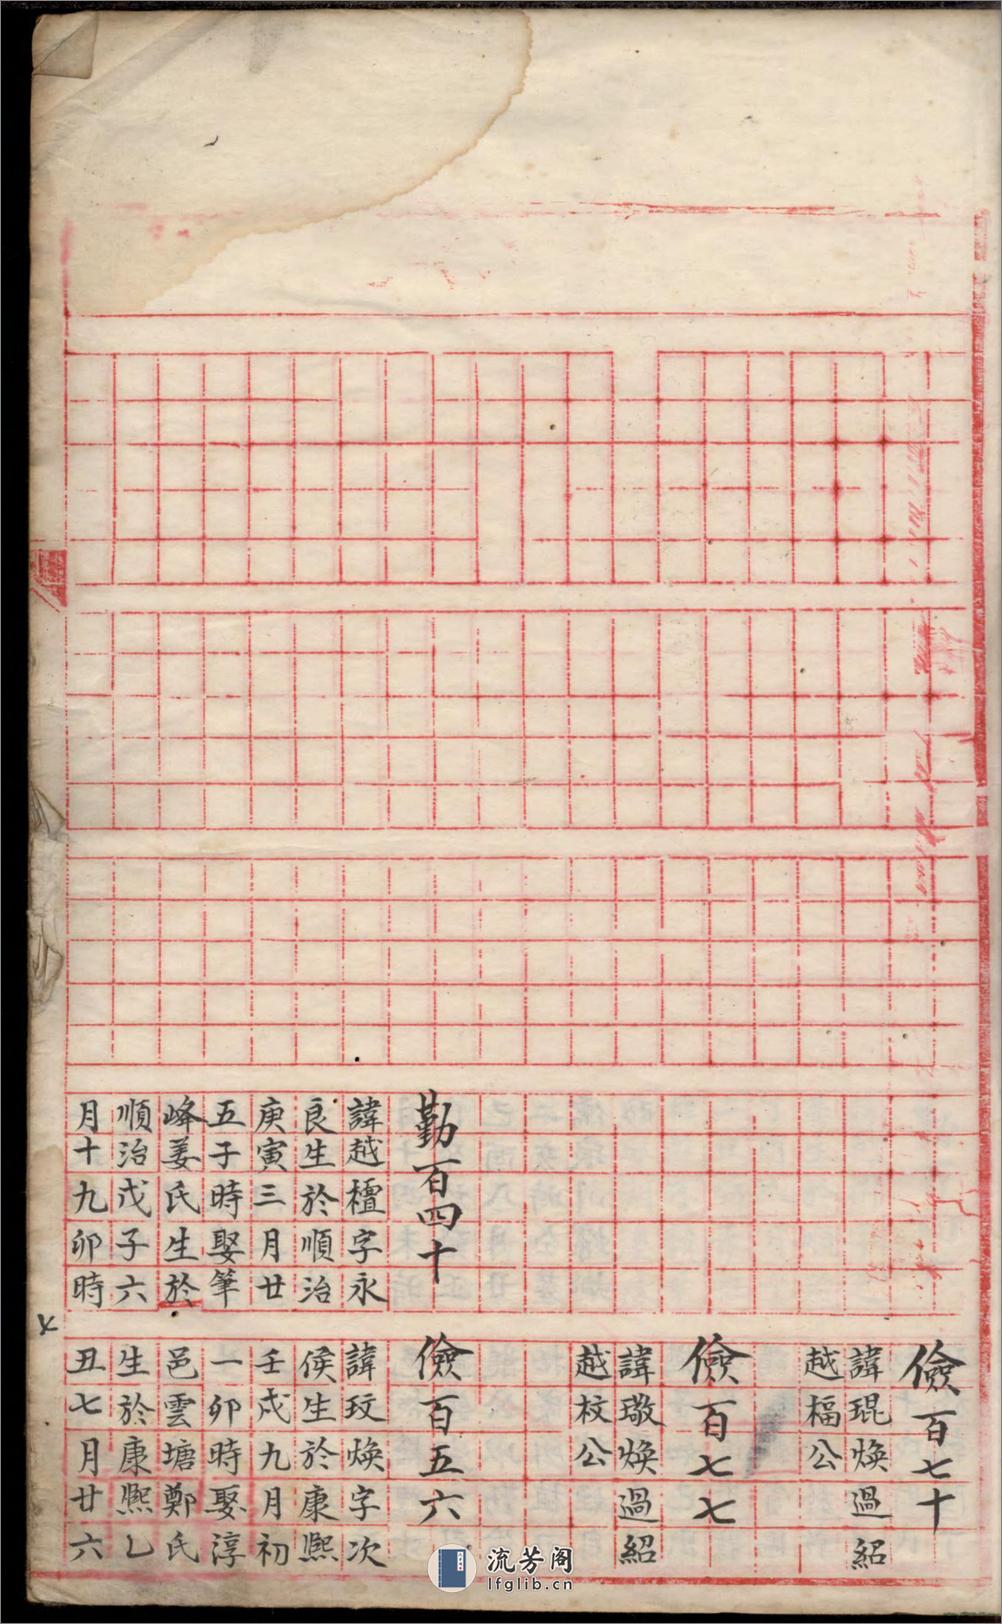 勤百四十
諱越檀字永
良生於順治
庚寅三月廿
五子時娶筆
峰姜氏生於
順治戊子六
月十九卯時
儉百七十
諱琨煥過紹
越楅公
儉百七七
諱璥煥過紹
越校公
儉百五六
諱玟煥字次
侯生於康熙
壬戌九月初
一卯時娶淳
邑雲塘鄭氏
生於康熙乙
丑七月廿六
流芳阁
lfglib.cn